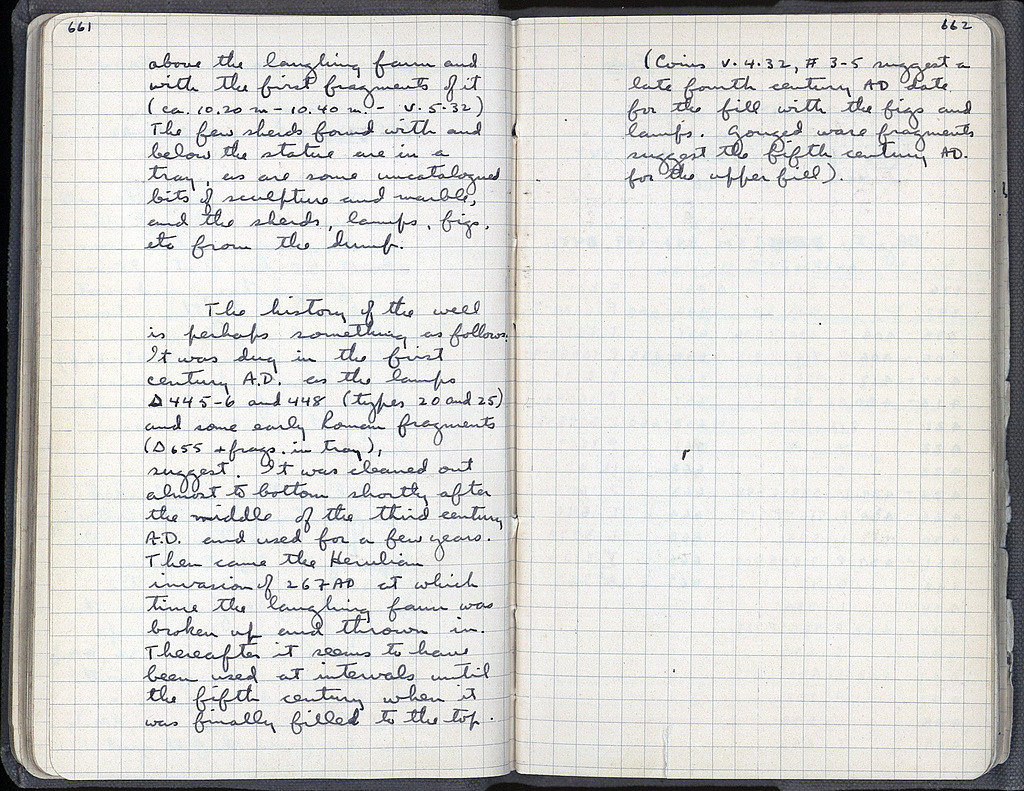 661
above the laughing faun and
with the first fragments of it
(ca. 10.20 m - 10.40 m - V.5.32)
The few sherds found with and
below the statue are in a
tray, as are some uncatalogued
bits of sculpture and marble,
and the sherds, lamps, figs,
etc from the dump.
The history of the well
is perhaps something as follows.
It was dug in the first
century A.D. as the lamps
Δ445-6 and 448 (types 20 and 25)
and some early Roman fragments
(Δ655 + frags. in tray),
suggest. It was cleaned out
almost to bottom shortly after
the middle of the third century
A.D. and used for a few years.
Then came the Herulian
invasion of 267 AD at which
time the laughing faun was
broken up and thrown in.
Thereafter it seems to have
been used at intervals until
the fifth century when it
was finally filled to the top.
662
(Coins V.4.32, # 3-5 suggest a
late fourth century AD date
for the fill with the figs and
lamps. Gouged ware fragments
suggest the fifth century AD.
for the upper fill).